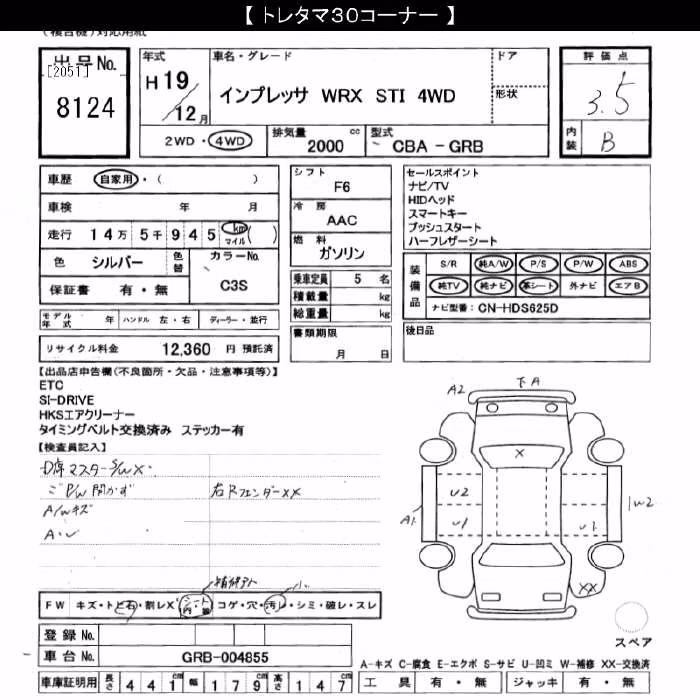 【 トレタマ30コーナー 】
(複合機)対応用紙
出品No.
[2051]
8124
年式
H 19/12月
車名・グレード
インプレッサ WRX STI 4WD
ドア
形状
評価点
3.5
内装
B
2WD・4WD
排気量
2000 cc
型式
CBA - GRB
車歴 自家用・( )
車検 年 月
走行 14万 5千 9 4 5 km マイル ( )
色 シルバー 色替 カラーNo.
C3S
保証書 有・無
シフト
F6
冷房
AAC
燃料
ガソリン
乗車定員 5 名
積載量 kg
総重量 kg
書類期限
月 日
セールスポイント
ナビ/TV
HIDヘッド
スマートキー
プッシュスタート
ハーフレザーシート
装備品
S/R 純A/W P/S P/W ABS
純TV 純ナビ 革シート 外ナビ エアB
ナビ型番: CN-HDS625D
後日品
モデル年式 年 ハンドル 左・右 ディーラー・並行
リサイクル料金 12,360 円 預託済
【出品店申告欄(不良箇所・欠品・注意事項等)】
ETC
SI-DRIVE
HKSエアクリーナー
タイミングベルト交換済み ステッカー有
【検査員記入】
D席マスターS/W×
P/W開かず
右Rフェンダー××
A/Wキズ
A・U
FW キズ・トビ石・割レX シート内張 コゲ・穴・汚レ・シミ・破レ・スレ
A2
下A
×
U2
U1
A1
W2
U1
××
スペア
登録No.
車台No. GRB-004855
A-キズ C-腐食 E-エクボ S-サビ U-凹ミ W-補修 XX-交換済
車庫証明用 長さ 4 4 1 cm 幅 1 7 9 cm 高さ 1 4 7 cm
工具 有・無 ジャッキ 有・無